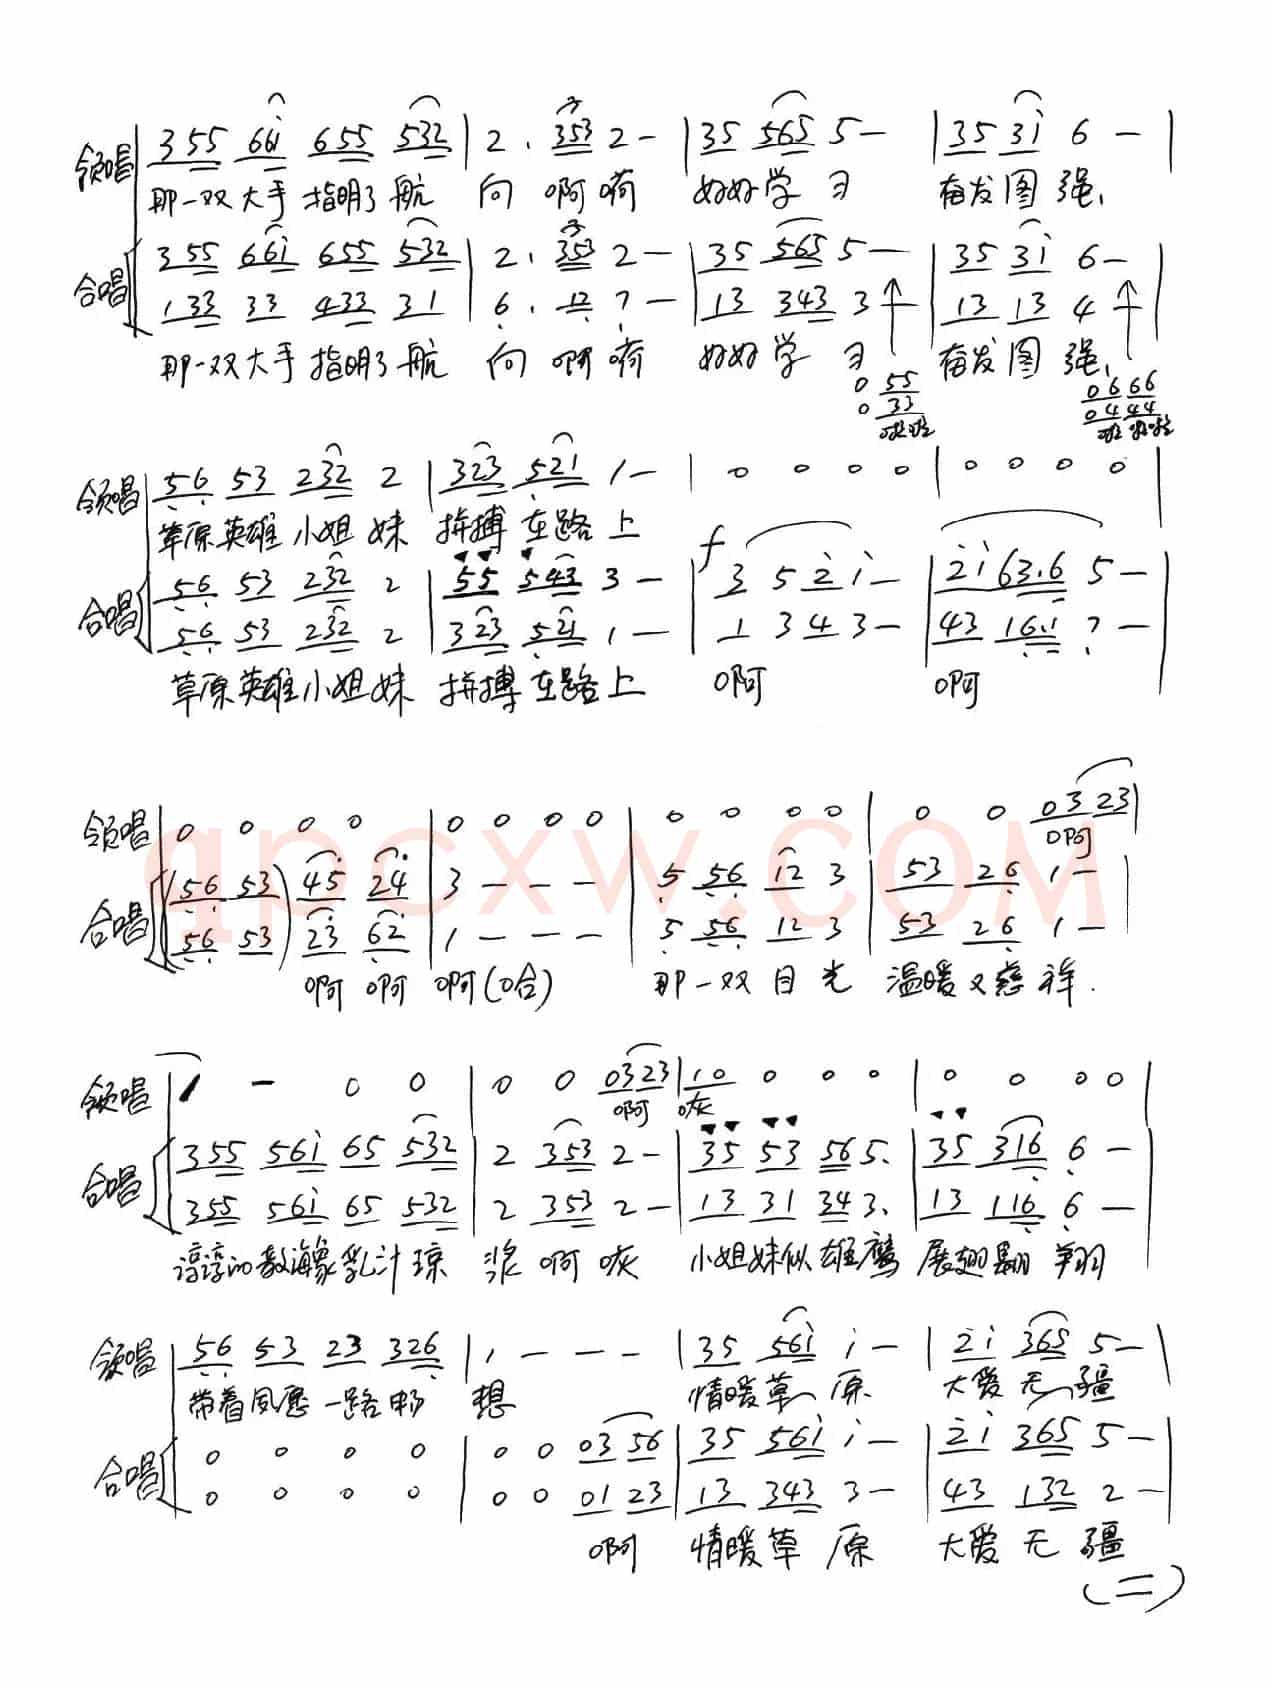 领唱 3 55 66i 655 532 | 2 . 353 2 — | 35 565 5 — | 35 3i 6 — |
那一双大手 指明了航 向 啊嗬 好好学 习 奋发图 强、
合唱 3 55 66i 655 532 | 2 . 353 2 — | 35 565 5 — | 35 3i 6 —
1 33 33 433 31 | 6 . 12 7 — | 13 343 3 | 13 13 4
那一双大手 指明了航 向 啊嗬 好好学 习 奋发图 强、
0 55 06 66
0 33 04 44
领唱 56 53 232 2 | 323 521 1 — | 0 0 0 0 | 0 0 0 0 |
草原英雄 小姐 妹 拼搏 在路 上
合唱 56 53 232 2 | 55 543 3 — | f 3 5 2 i — | 2i 63.6 5 — |
56 53 232 2 | 323 521 1 — | 1 3 4 3 — | 43 16.1 7 — |
草原英雄小姐妹 拼搏 在路上 啊 啊
领唱 0 0 0 0 | 0 0 0 0 | 0 0 0 0 | 0 0 03 23 |
啊
合唱 (56 53) 45 24 | 3 — — — | 5 56 12 3 | 53 26 1 — |
56 53 23 62 | 1 — — — | 5 56 12 3 | 53 26 1 — |
啊 啊 啊(哈) 那一双 目 光 温暖又慈 祥.
领唱 1 — 0 0 | 0 0 03 23 | 10 0 0 0 | 0 0 0 0 |
啊 咴
合唱 355 56i 65 532 | 2 353 2 — | 35 53 56 5. | 35 316 6 — |
355 56i 65 532 | 2 353 2 — | 13 31 34 3. | 13 116 6 — |
谆谆的教诲象乳汁琼 浆 啊 咴 小姐妹似雄鹰 展翅翱 翔
领唱 56 53 23 326 | 1 — — — | 35 56i i — | 2i 365 5 — |
带着夙愿一路畅 想 情暖草 原 大爱 无 疆
合唱 0 0 0 0 | 0 0 03 56 | 35 56i i — | 2i 365 5 — |
0 0 0 0 | 0 0 01 23 | 13 343 3 — | 43 132 2 — |
啊 情暖草 原 大爱 无 疆
(二)
qpcxw.com